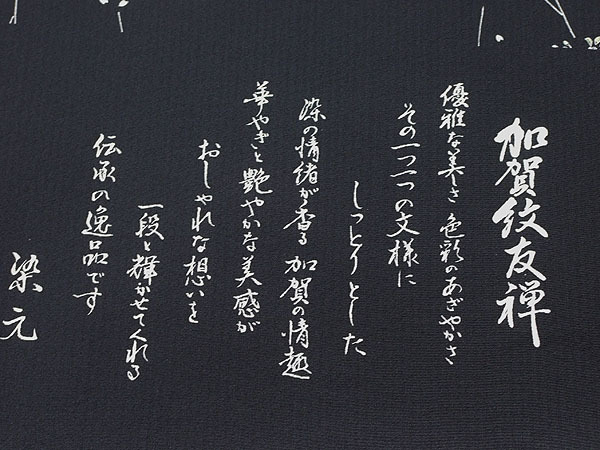 加賀紋友禅
優雅な美しさ 色彩のあざやかさ
その一つ一つの文様に
しっとりとした
染の情緒が香る 加賀の情趣
華やぎと艶やかな美感が
おしゃれな想いを
一段と輝かせてくれる
伝承の逸品です
染元